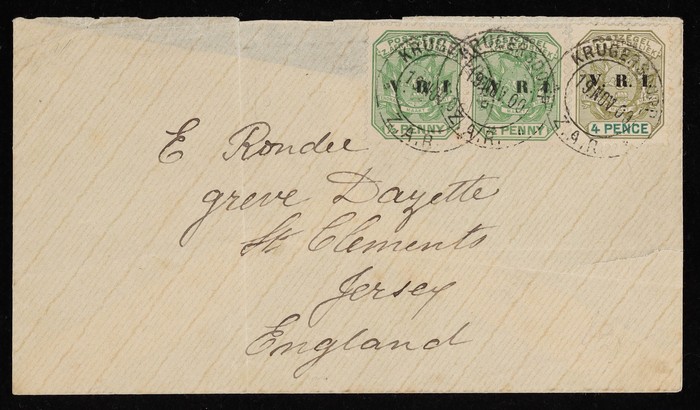 POSTZEGEL
V. R. I.
½ PENNY
V. R. I.
½ PENNY
POSTZEGEL
V. R. I.
4 PENCE
KRUGERSDORP
19 NOV 00
Z.A.R.
KRUGERSDORP
19 NOV 00
Z.A.R.
KRUGERSDORP
19 NOV 00
Z.A.R.
E Rondel
greve Dazette
St Clements
Jersey
England